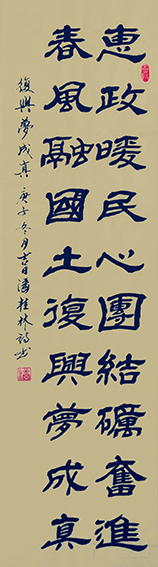 恵政暖民心團結礪奮進
春風融國土復興夢成真
復興夢成真 庚子冬月吉日潘桂林詩书